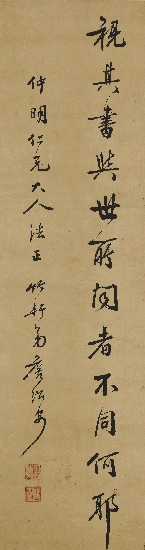 視其書與世所傳者不同何耶
仲明仁兄大人法正 竹軒弟